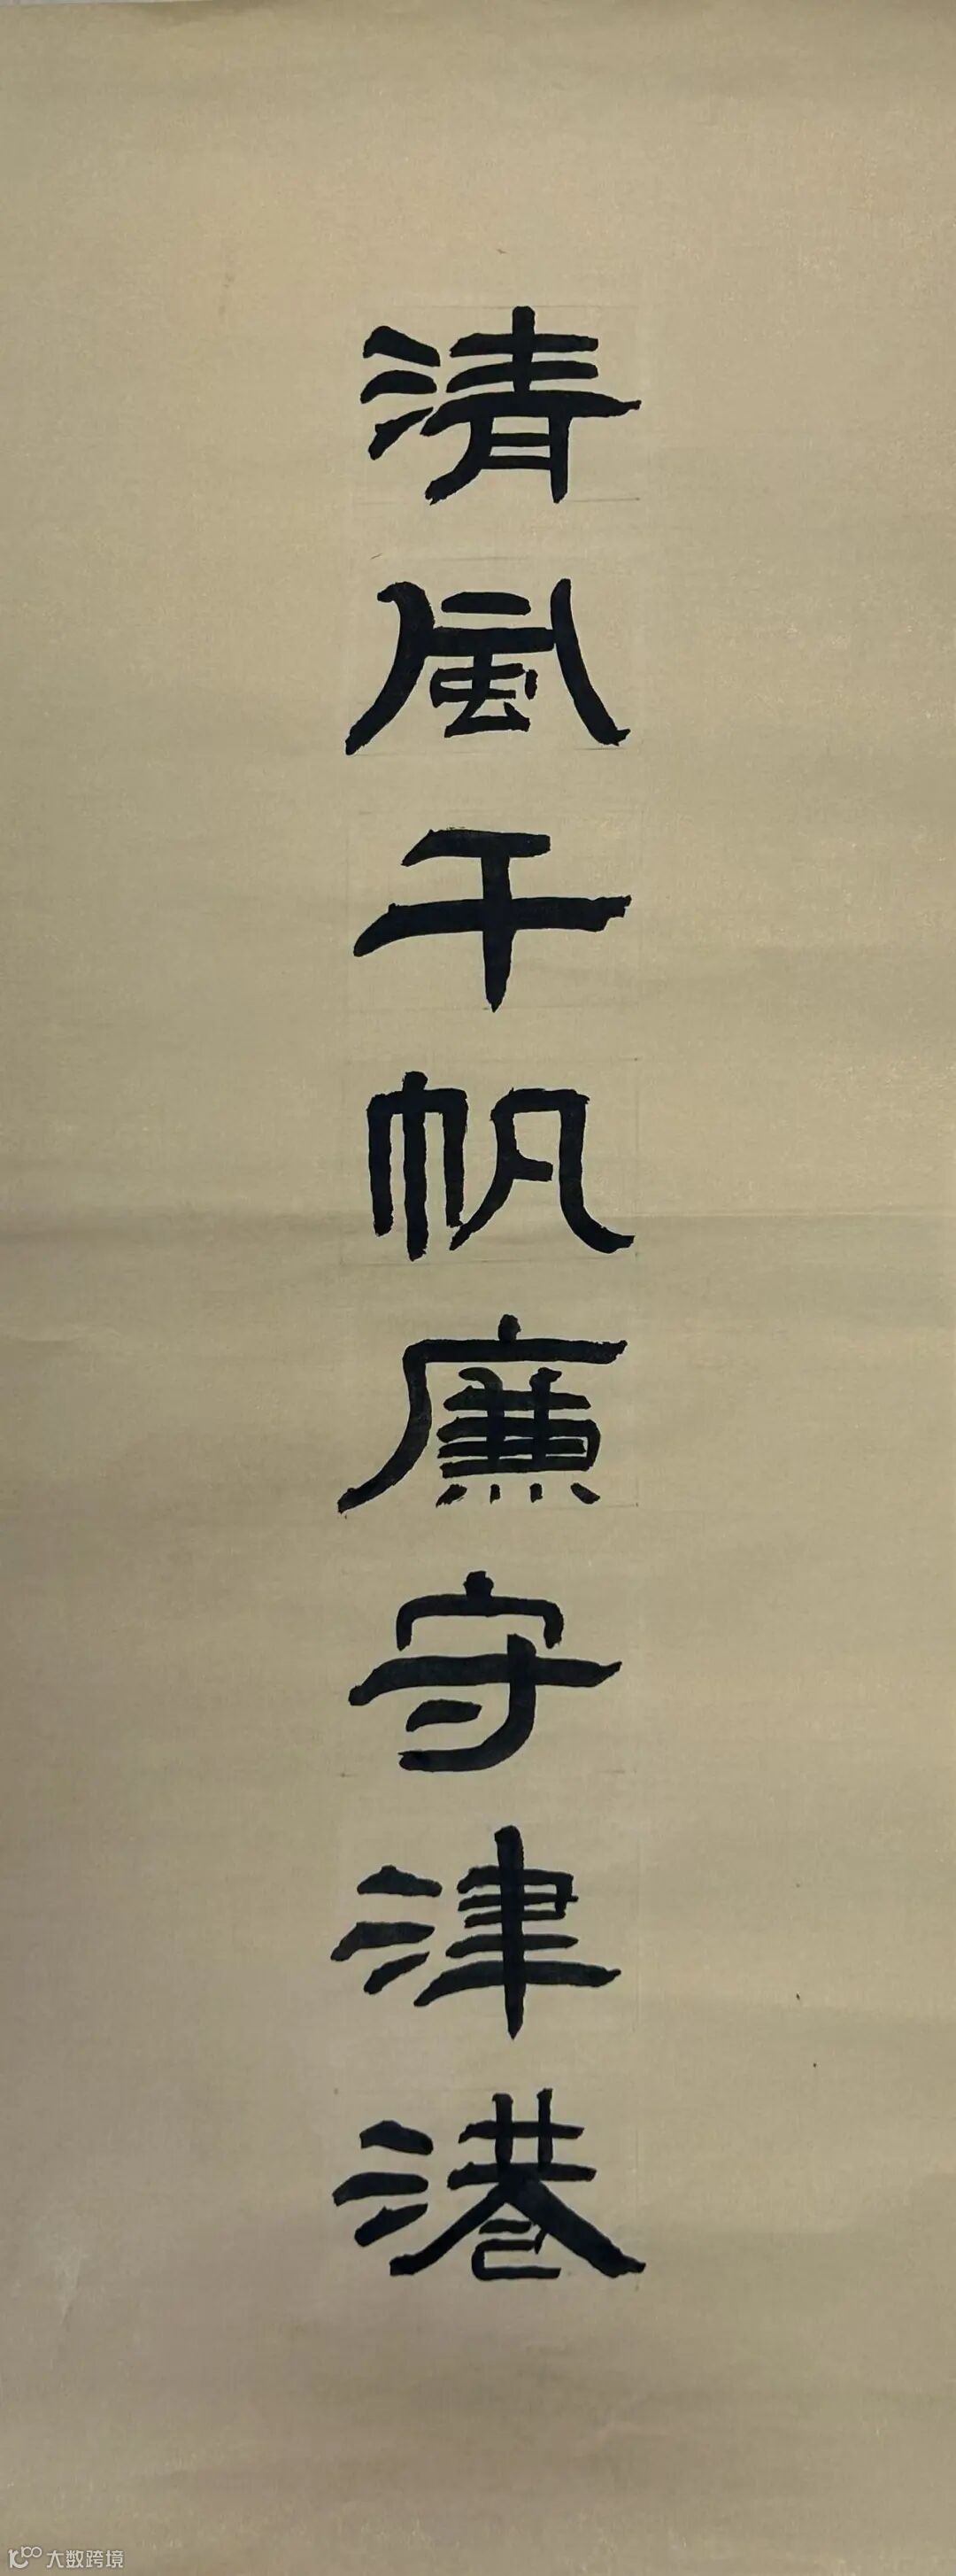 清風千帆廉守津港
大数跨境